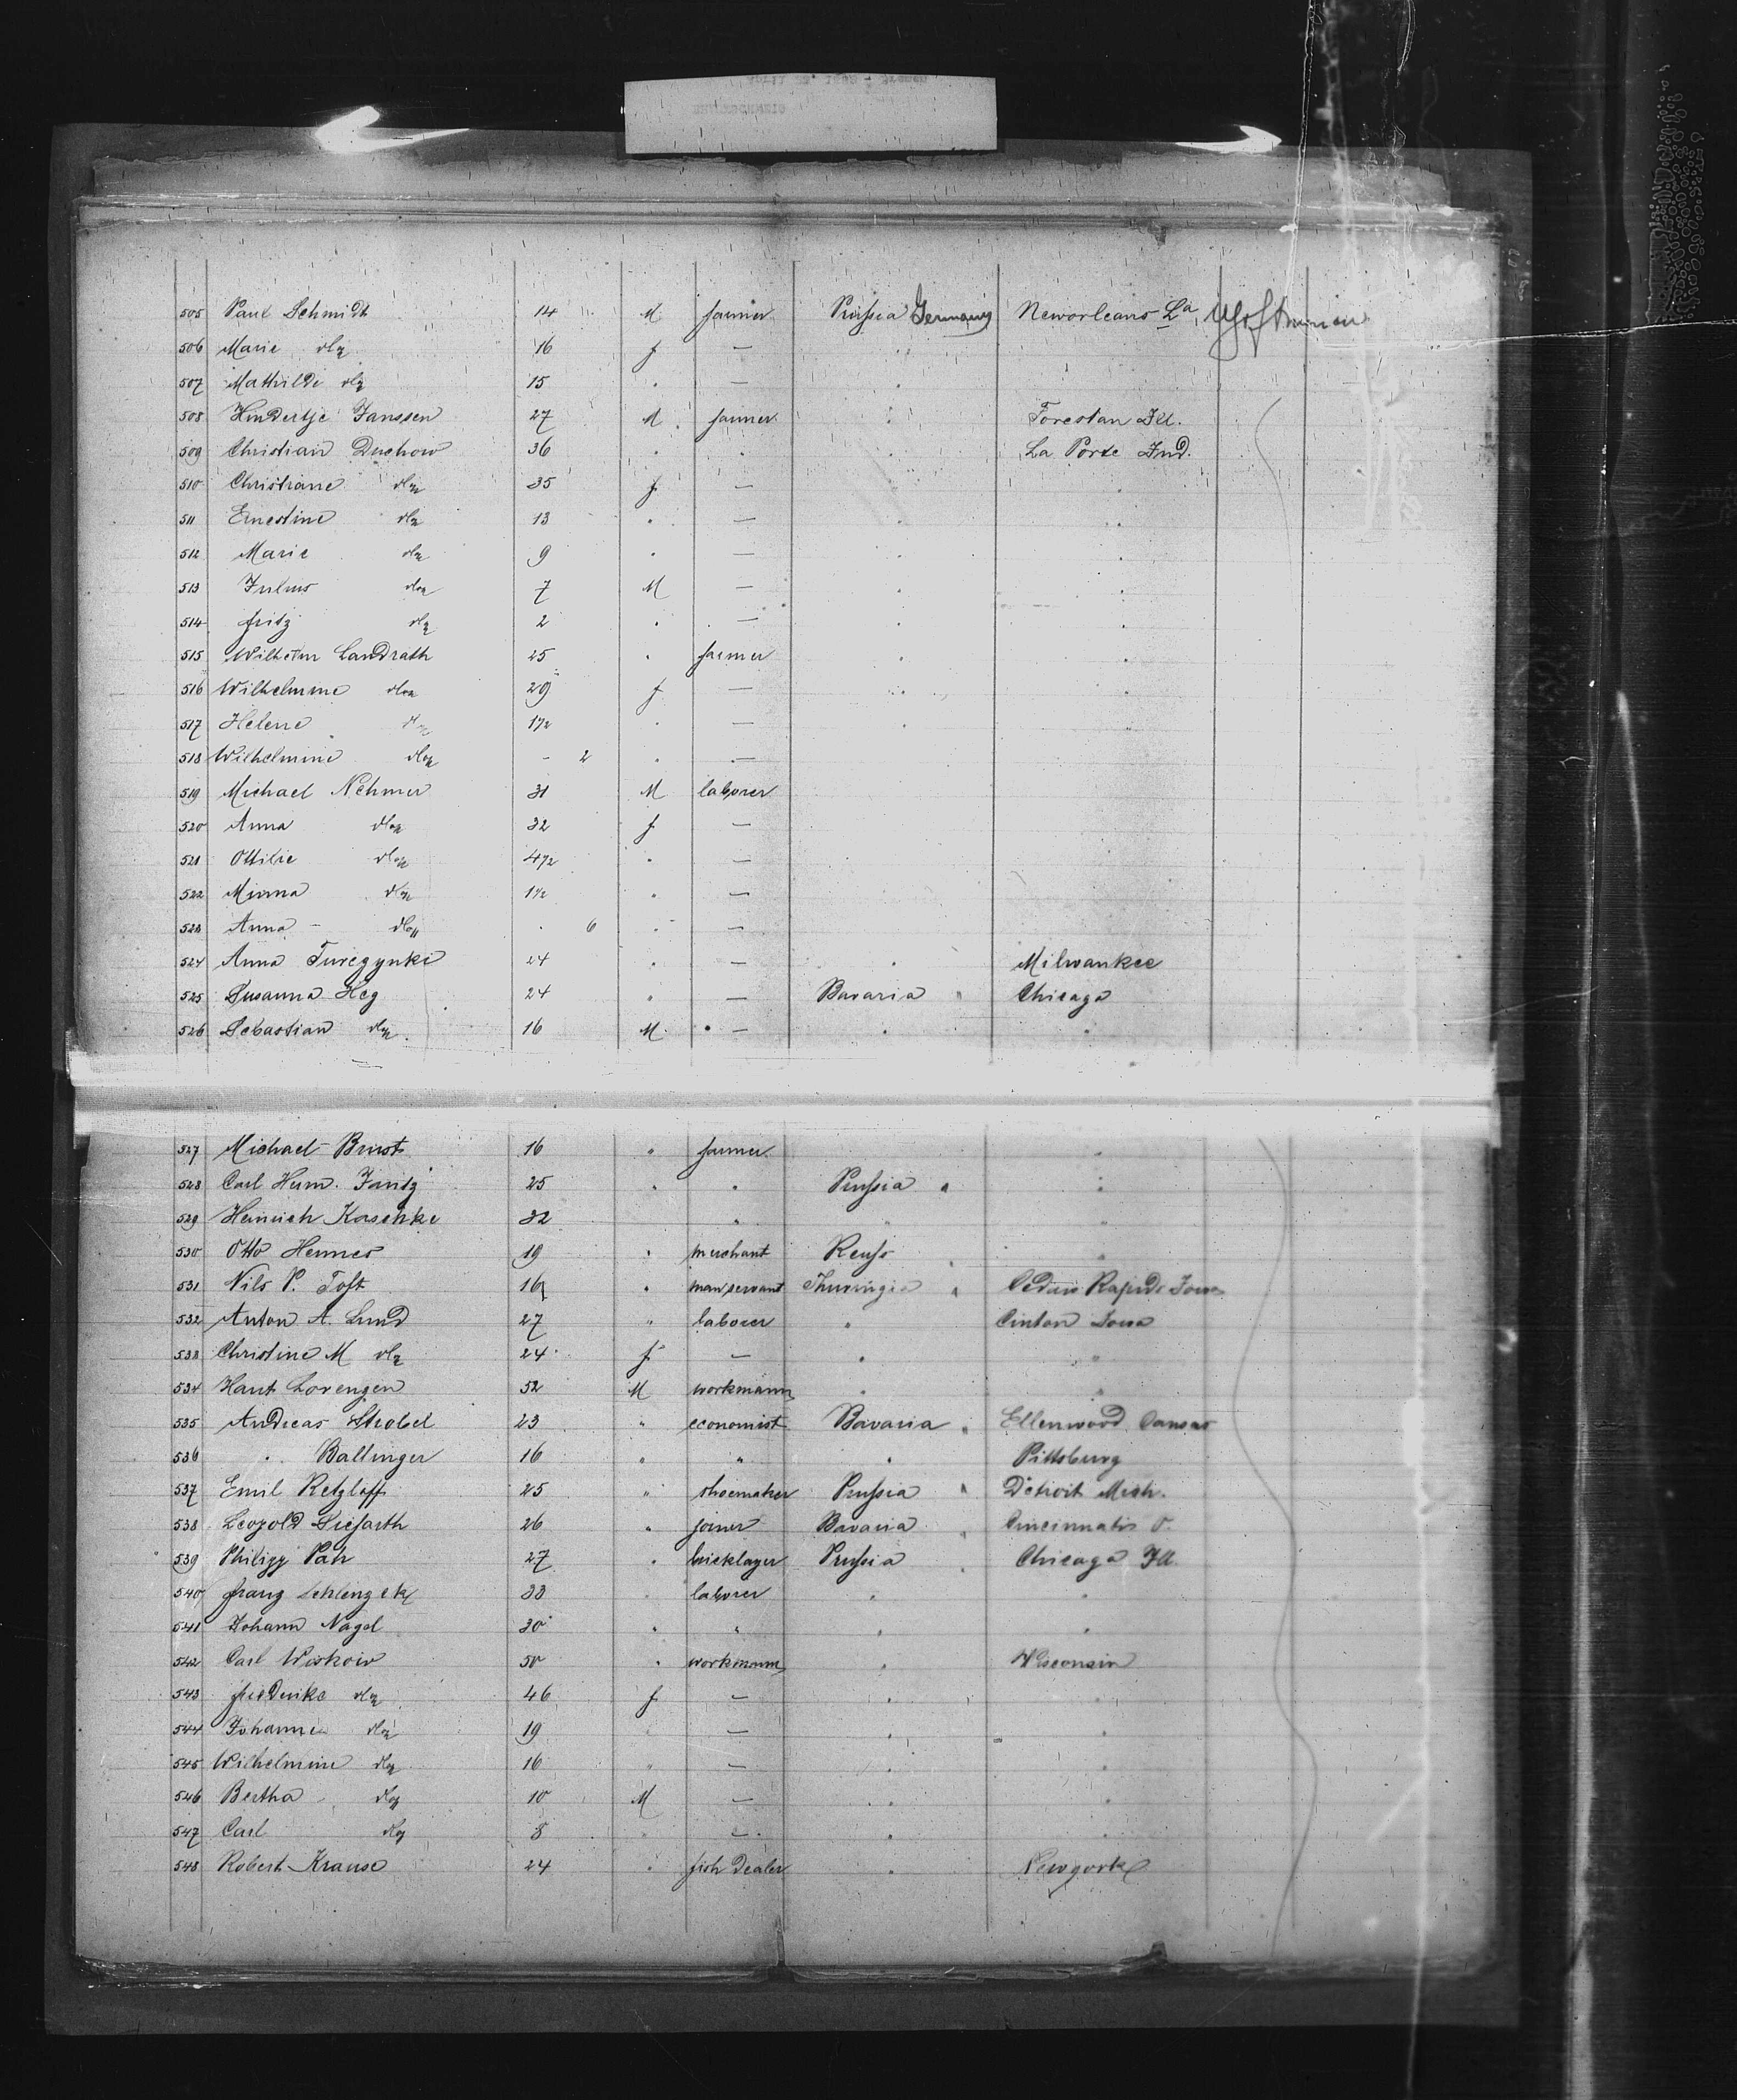 505 Paul Schmidt 14 M farmer Prussia Germany Neworleans La
506 Marie do 16 f —
507 Mathilde do 15 " —
508 Hindertje Janssen 27 M farmer " Forestan Ill.
509 Christian Duchow 36 " " " La Porte Ind.
510 Christiane do 35 f — "
511 Ernestine do 13 " — " "
512 Marie do 9 " — " "
513 Julius do 7 M — " "
514 fritz do 2 " — " "
515 Wilhelm Landrath 25 " farmer " "
516 Wilhelmine do 29 f — " "
517 Helene do 1 1/2 " — "
518 Wilhelmine do - 2 " —
519 Michael Nehmer 31 M laborer
520 Anna do 32 f —
521 Ottilie do 4 1/2 " —
522 Minna do 1 1/2 " —
523 Anna do " 6 " —
524 Anna 24 " — " Milwaukee
525 Susanna Heg 24 " — Bavaria " Chicago
526 Sebastian do 16 M — " "
527 Michael Brust 16 " farmer "
528 Carl Herm. 25 " " Prussia " "
529 Heinrich Kaschke 32 " " "
530 Otto Hennes 19 " merchant Reuss " "
531 Nils P. Toft 16 " manservant Thuringia " Cedar Rapids Iowa
532 Anton A. Lund 27 " laborer " Cinton Iowa
533 Christine M do 24 f — " "
534 Hant Lorenzen 52 M workmann " "
535 Andreas Strobel 23 " economist Bavaria " Ellenwood Cansas
536 " Ballinger 16 " " " Pittsburg
537 Emil Retzlaff 25 " shoemaker Prussia " Detroit Mich.
538 Leopold Siefarth 26 " joiner Bavaria " Cincinnatis O.
539 Philipp Pah 27 " bricklayer Prussia " Chicago Ill.
540 franz Schlenzek 33 " laborer " "
541 Johann Nagel 30 " " " "
542 Carl Wiskow 50 " workmann " Wisconsin
543 frederike do 46 f — " "
544 Johanne do 19 " — " "
545 Wilhelmine do 16 " — " "
546 Bertha do 10 M — " "
547 Carl do 8 " — " "
548 Robert Krause 24 " fish dealer " Newyork